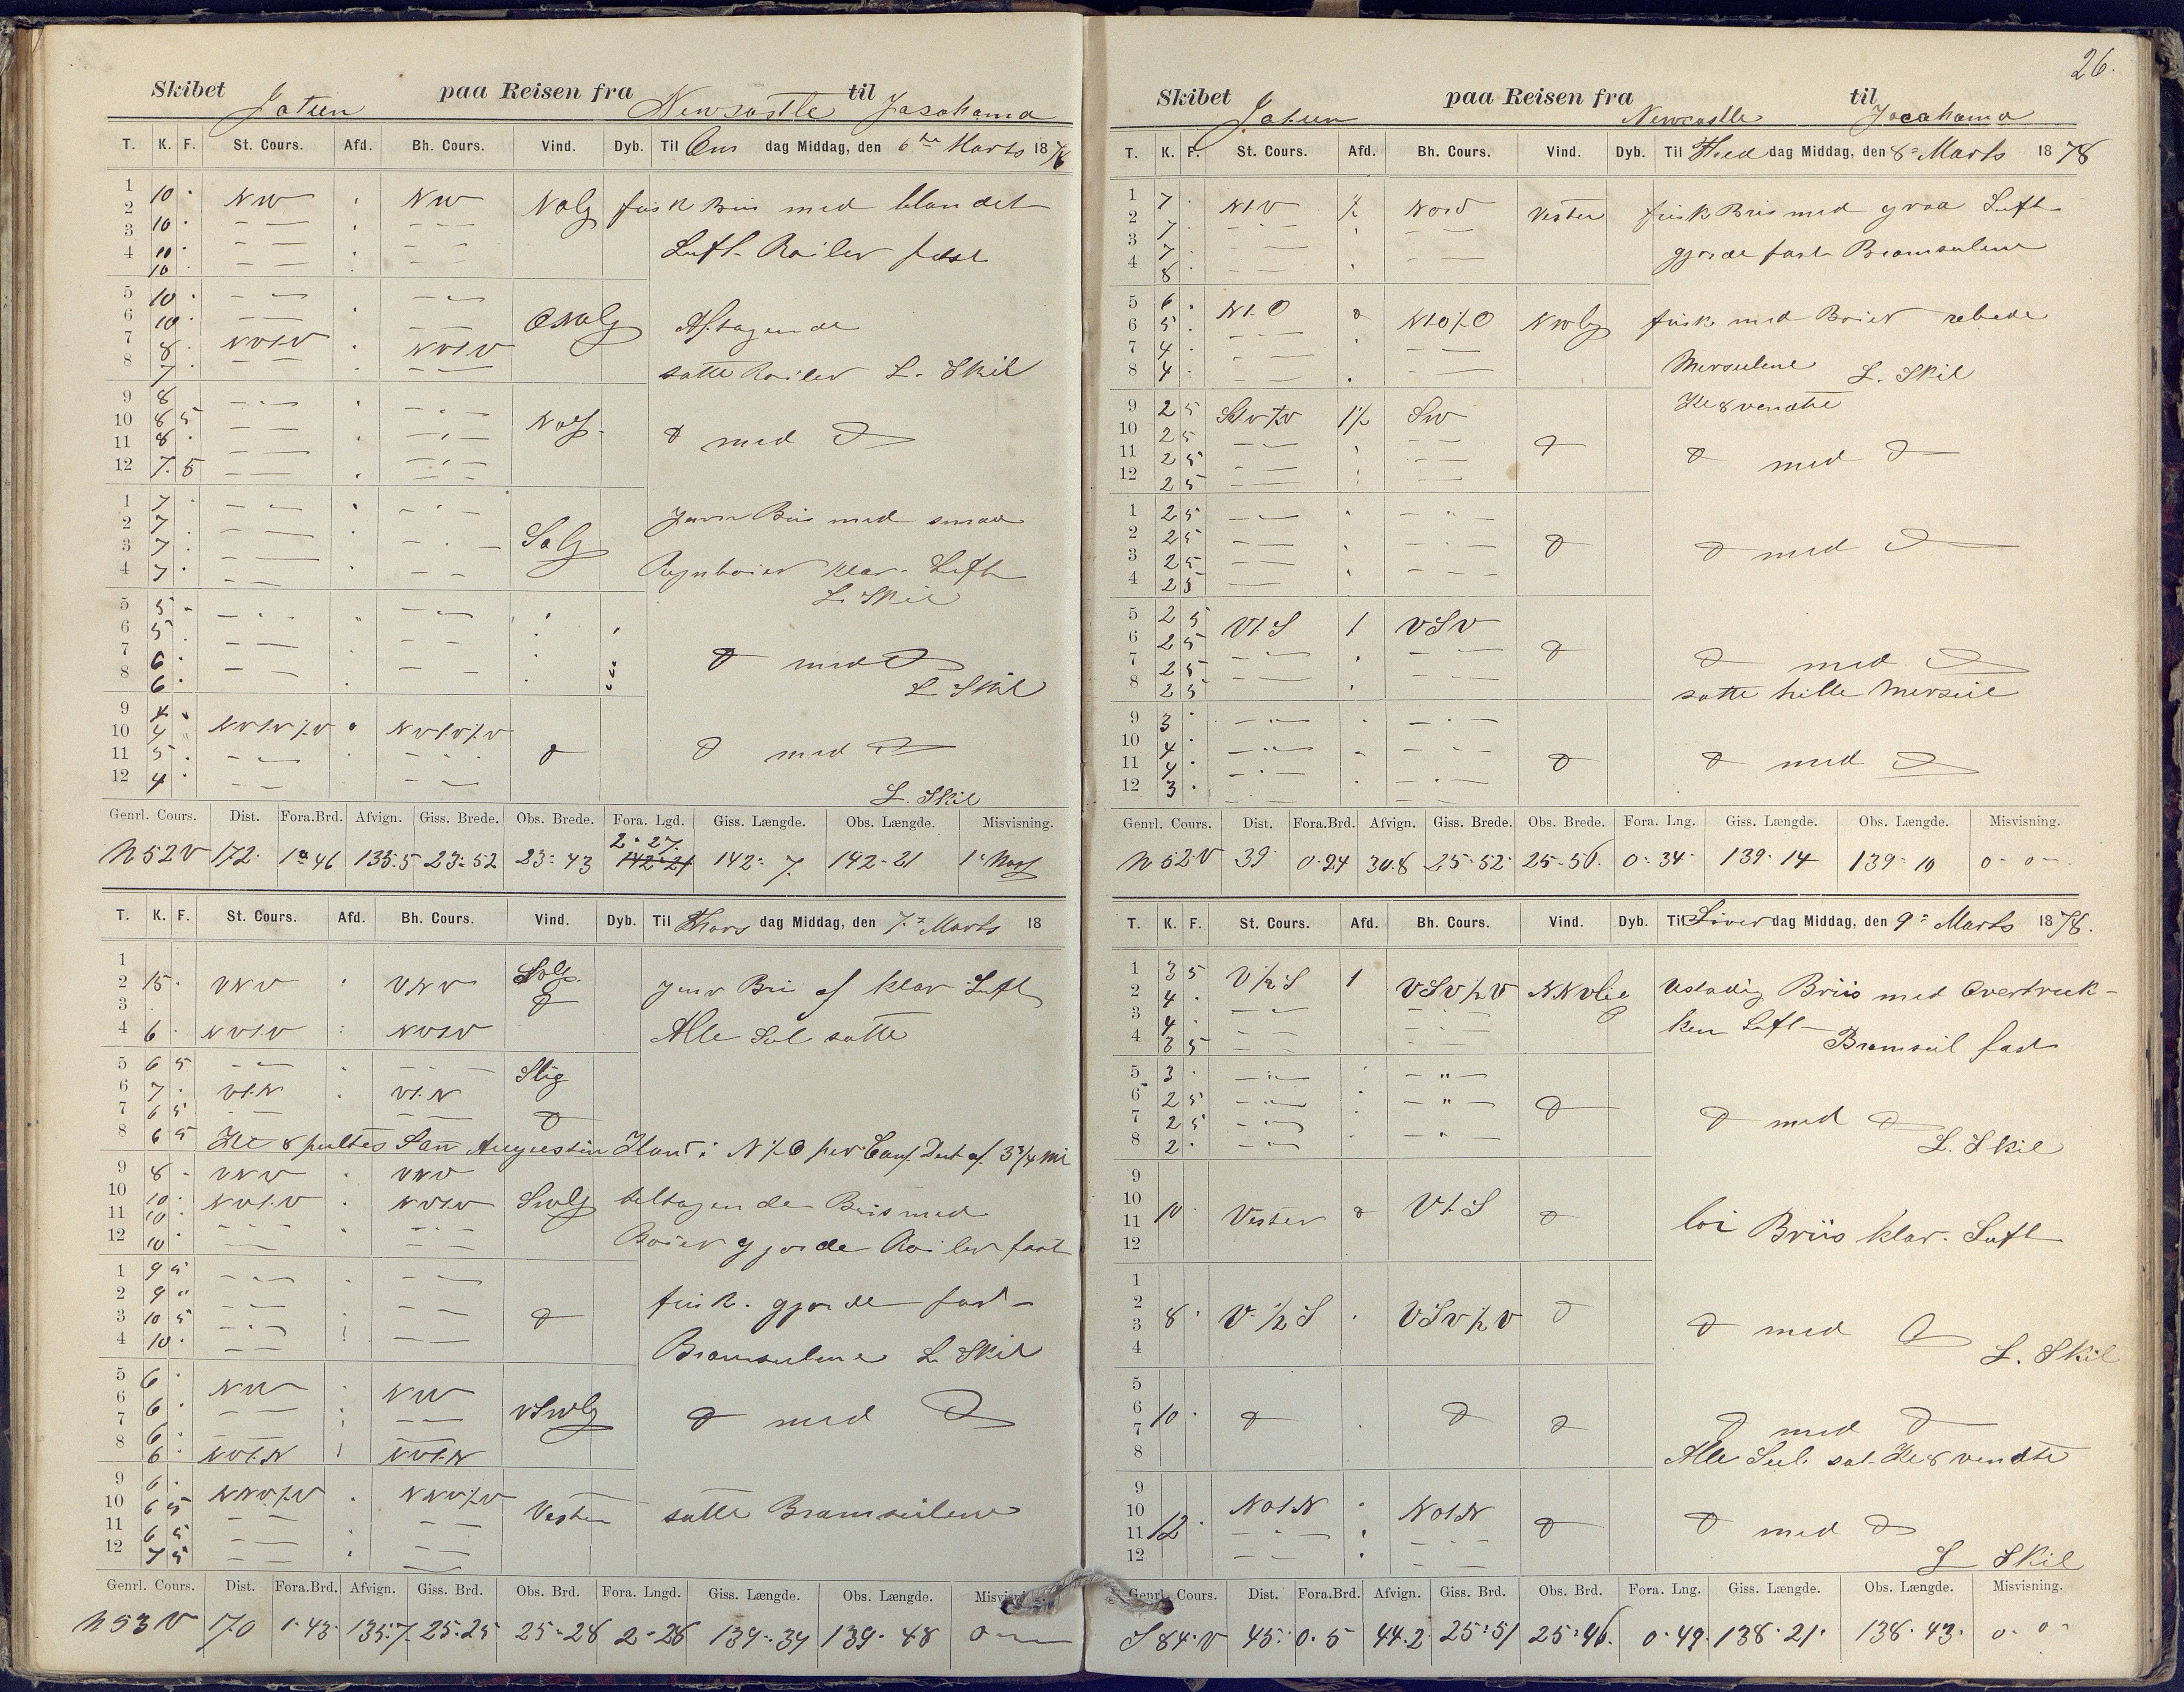 Skibet Jatuen paa Reisen fra Newcastle til Jacohama
T. K. F. St. Cours. Afd. Bh. Cours. Vind. Dyb. Til Ons dag Middag, den 6te Marts 1878
1 10 NW NW NOlg frisk Bris med blandet
2 10
3 10 Luft. Roiler fast
4 10
5 10
6 10 ONOlg Aftagende
7 8 NVtV NVtV
8 7 satte Roiler L. Skil
9 8
10 8 5 d med d
11 8
12 7. 5
1 7 Jævn Bris med smaa
2 7
3 7 SOlg
4 7 Regnboier klar Luft
L. Skil
5 5
6 5
7 6 d med d
8 6 L Skil
9 4
10 4 NVtV½V NVtV½V
11 5 d d med d
12 4 L. Skil
Genrl. Cours. Dist. Fora.Brd. Afvign. Giss. Brede. Obs. Brede. Fora. Lgd. Giss. Længde. Obs. Længde. Misvisning.
2-27.
N 52 V 172 1-46 135.5 23-52 23-43 142-21 142-7 142-21
T. K. F. St. Cours. Afd. Bh. Cours. Vind. Dyb. Til Thors dag Middag, den 7- Marts 18
1
2 15 VNV VNV SOlg Jevn Bri af klar Luft
3 d
4 6 NVtV NVtV Alle Seil satte
5 6 5 Slig
6 7 VtN VtN
7 6 5 d
8 6 5 Kl 8 peiltes San Augustin Iland i N½O per Comp. Dist af 3¾ Mil
9 8 VNV VNV
10 10 NVtV NVtV SWlg tiltagende Bris med
11 10
12 10 Boier gjorde Roiler fast
1 9 5
2 9 frisk. gjorde fast
3 10 5 d
4 10 Bramseilene L. Skil
5 6 NW NW
6 6 VSWlg d med d
7 6
8 6 NVtN NVtN
9 6
10 6 5 NNV½V NNV½V Vesten satte Bramseilene
11 6 5
12 7 5
Genrl. Cours. Dist. Fora.Brd. Afvign. Giss. Brd. Obs. Brd. Fora. Lngd. Giss. Længde. Obs. Længde.
N 53 V 170 1-43 135.7 25-25 25-28 2-26 139-39 139-48 0
26.
Skibet Jatuen paa Reisen fra Newcastle til Jocohama
T. K. F. St. Cours. Afd. Bh. Cours. Vind. Dyb. Til Fred dag Middag, den 8- Marts 1878
1 7 NtV ½ Nord Vesten frisk Bris med graa Luft
2 7
3 7 gjorde fast Bramseilene
4 8
5 6 NtO d NtO½O NWlg frisk med Boier rebede
6 5
7 4 Merseilene L. Skil
8 4
9 2 5 1½ SW Kl 8 vendte
10 2 5 d
11 2 5 d med d
12 2 5
1 2 5
2 2 5 d d med d
3 2 5
4 2 5
5 2 5 VtS 1 VSV
6 2 5 d
7 2 5 d med d
8 2 5 satte hille Merseil
9 3
10 4
11 4 d d med d
12 3
Genrl. Cours. Dist. Fora.Brd. Afvign. Giss. Brede. Obs. Brede. Fora. Lng. Giss. Længde. Obs. Længde. Misvisning.
N 52 V 39 0-24 30.8 25-52 25-56. 0-34 139-14 139-10 0-0
T. K. F. St. Cours. Afd. Bh. Cours. Vind. Dyb. Til Lører dag Middag, den 9- Marts 1878.
1 3 5 V½S 1 VSV½V NNVlig Ustadig Briis med Overtræk-
2 4
3 4 ken Luft Bramseil fast
4 3 5
5 3
6 2 5 d
7 2 5 d med d
8 2 L. Skil
9
10
11 10 Vesten d VtS d loi Briis klar. Luft
12
1
2
3 8 V½S VSV½V d d med d
4 L. Skil
5
6
7 10 d d d d med d
8 Alle Seil sat. Kl 8 vendte
9
10 NOtN NOtN d d med d
11 12
12 L Skil
Genrl. Cours. Dist. Fora.Brd. Afvign. Giss. Brd. Obs. Brd. Fora. Lng. Giss. Længde. Obs. Længde. Misvisning.
S 84 V 45 0-5 44.2 25-51 25-46. 0-49 138-21 138-43 0-0